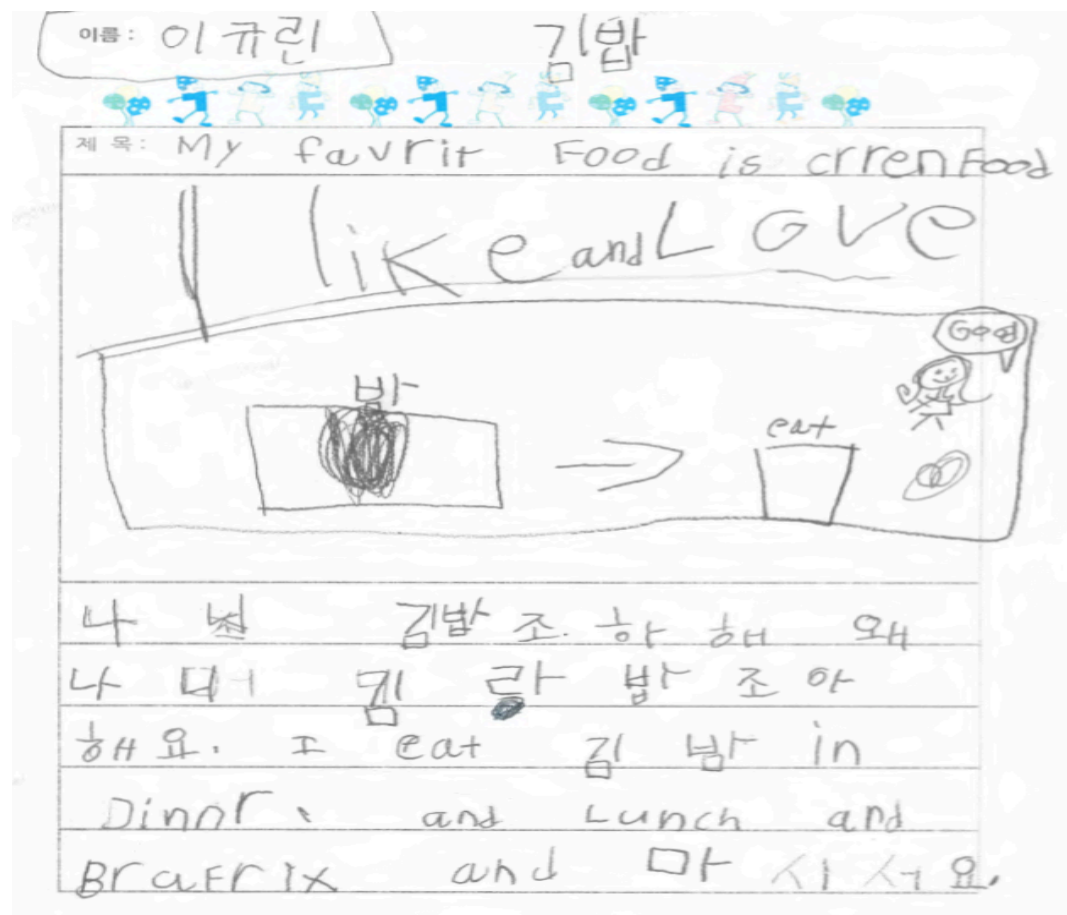 이름: 이규린
김밥
제 목: My favrit Food is crrenFood
I like and LOVE
Good
밥
eat
나 김밥 조. 하 해 왜
나 김 라 밥 조 아
해요. I eat 김 밥 in
Dinnr. and Lunch and
Bracfrix and 마 시 서 요.